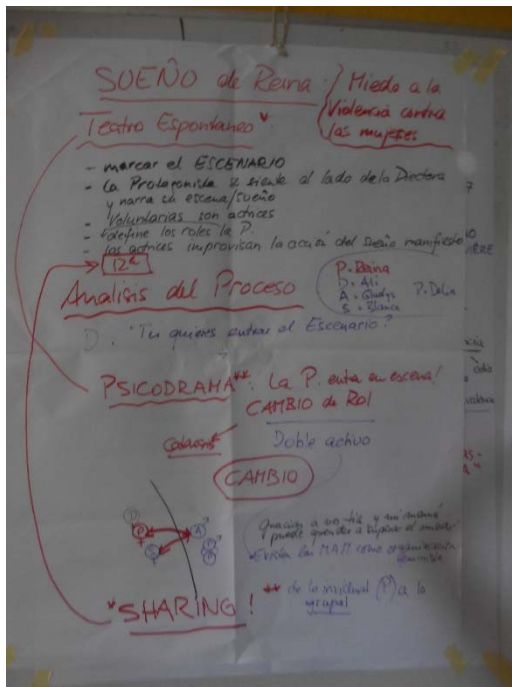 SUEÑO de Reina
Miedo a la
Violencia contra
las mujeres
Teatro Espontaneo *
- marcar el ESCENARIO
- La Protagonista se siente al lado de la Directora
y narra su escena/sueño
- Voluntarias son actrices
- define los roles la P.
- las actrices improvisan la acción del sueño manifiesto
Analisis del Proceso
P = Reina
D = Ali
A = Gladys
S = Blanca
D: "Tu quieres entrar al Escenario?"
PSICODRAMA**: La P. entra en escena!
CAMBIO de Rol
Doble activo
CAMBIO
P
A
S
Gracias a mi tía y mi mamá
*SHARING!
** de lo individual (P) a lo
grupal